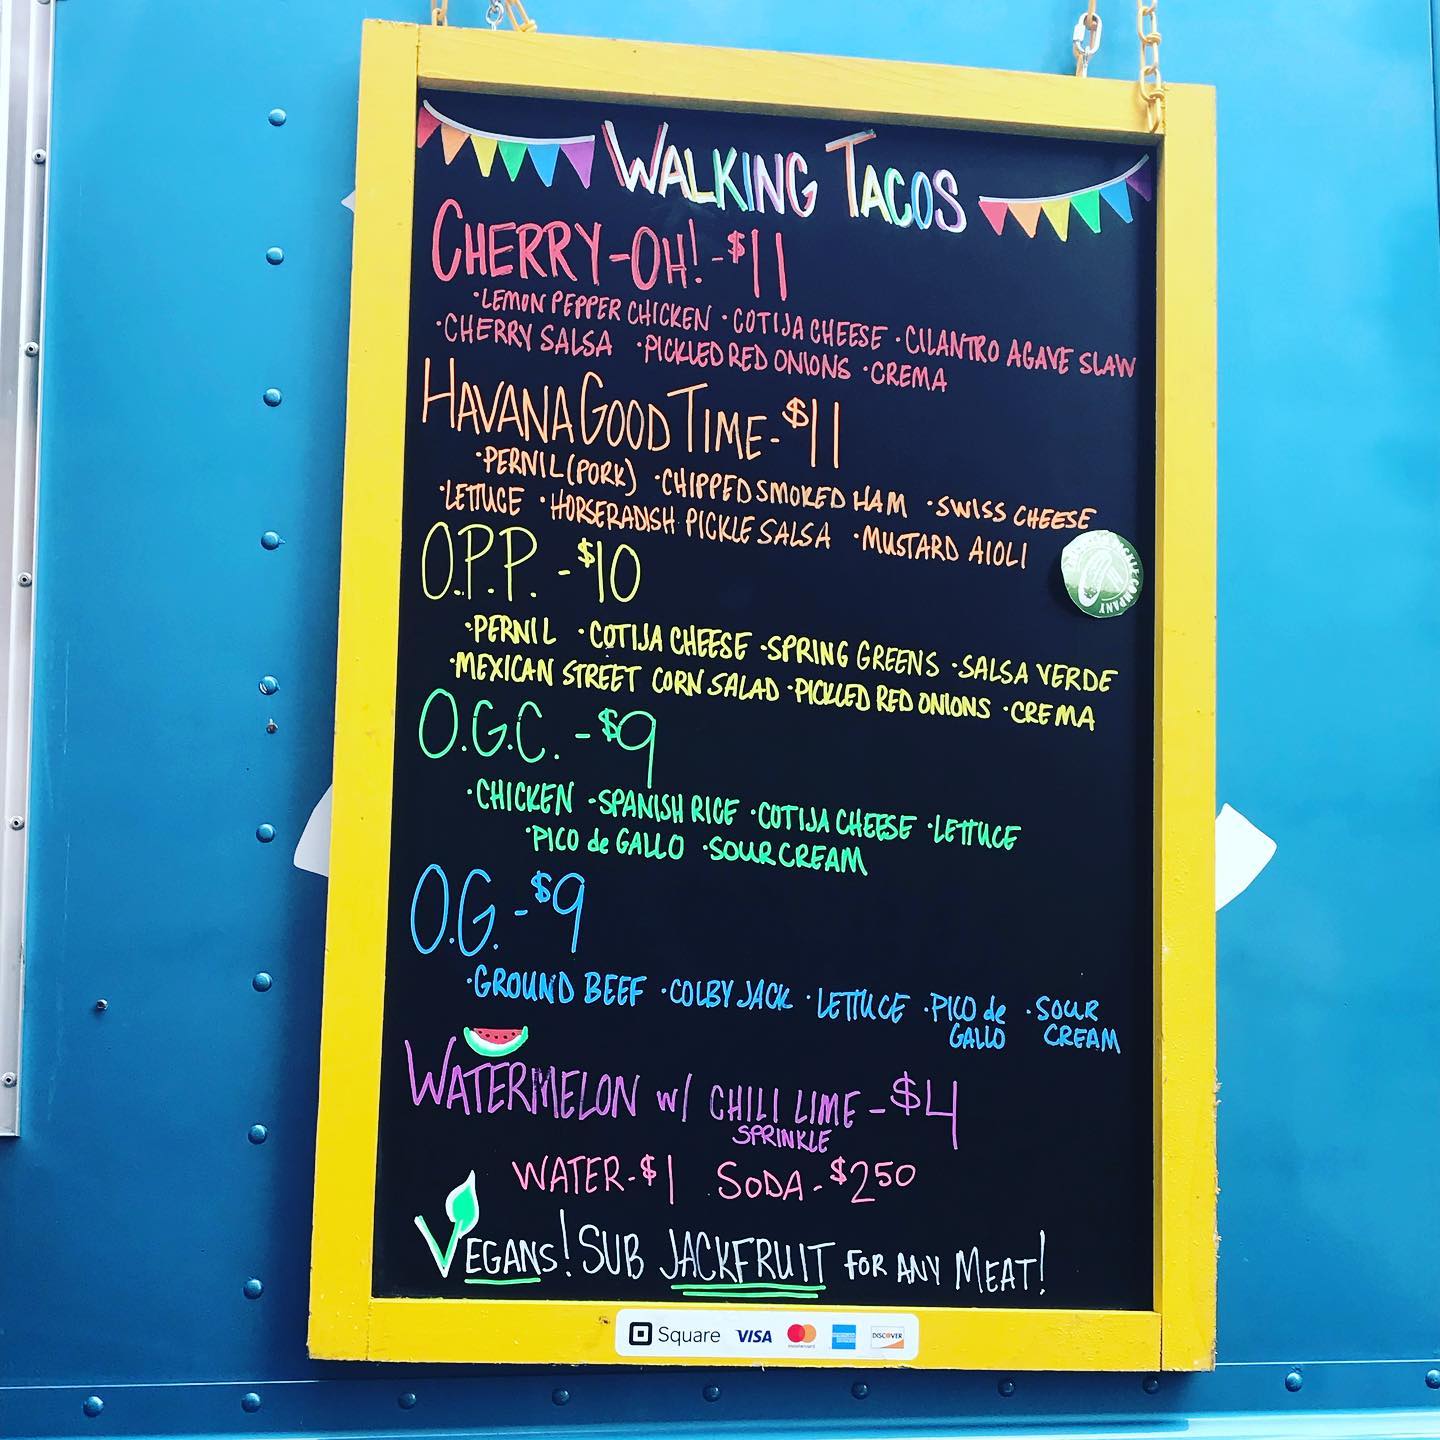 WALKING TACOS
CHERRY-OH! - $11
·LEMON PEPPER CHICKEN ·COTIJA CHEESE ·CILANTRO AGAVE SLAW
·CHERRY SALSA ·PICKLED RED ONIONS ·CREMA
HAVANA GOOD TIME - $11
·PERNIL (PORK) ·CHIPPED SMOKED HAM ·SWISS CHEESE
·LETTUCE ·HORSERADISH PICKLE SALSA ·MUSTARD AIOLI
O.P.P. - $10
·PERNIL ·COTIJA CHEESE ·SPRING GREENS ·SALSA VERDE
·MEXICAN STREET CORN SALAD ·PICKLED RED ONIONS ·CREMA
O.G.C. - $9
·CHICKEN ·SPANISH RICE ·COTIJA CHEESE ·LETTUCE
·PICO de GALLO ·SOUR CREAM
O.G. - $9
·GROUND BEEF ·COLBY JACK ·LETTUCE ·PICO de ·SOUR
GALLO CREAM
WATERMELON w/ CHILI LIME - $4
SPRINKLE
WATER - $1 SODA - $2 50
VEGANS! SUB JACKFRUIT FOR ANY MEAT!
Square VISA mastercard DISCOVER
COMPANY